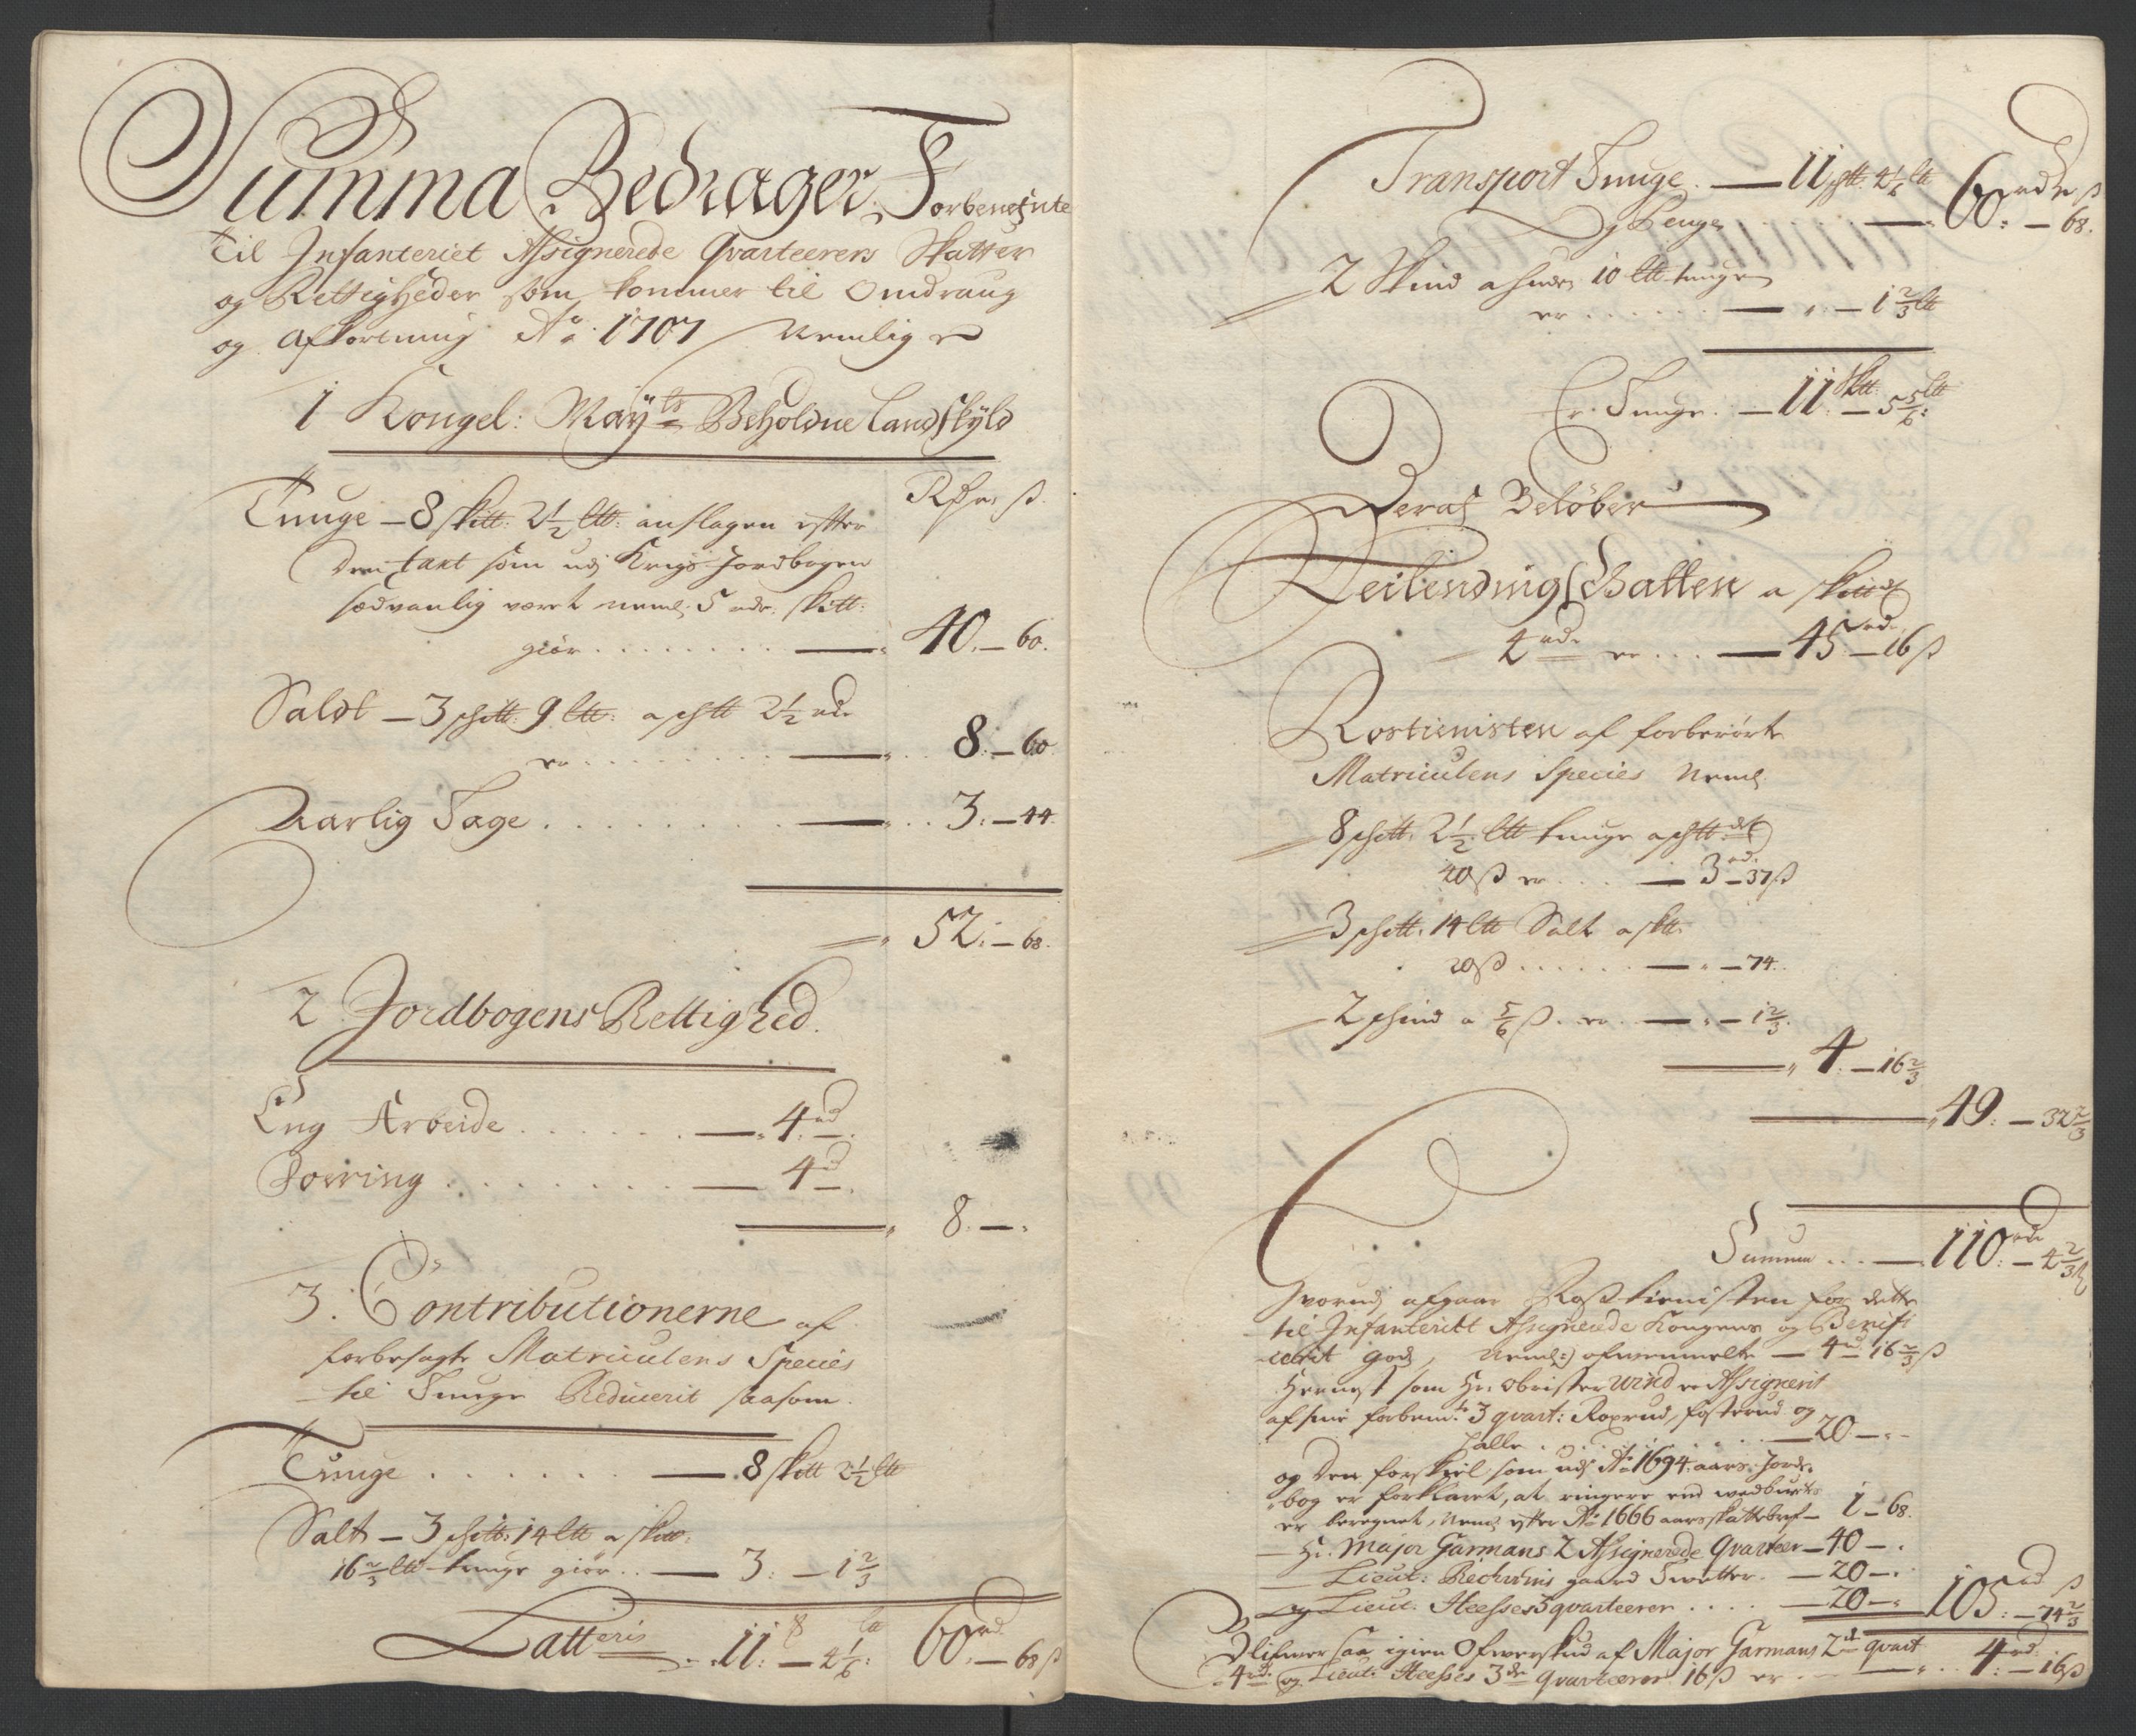 Summa Bedrager Forbenefnte
til Infanteriet Assignerede Qvarteerers Skatter
og Rettigheder som kommer til Omdraug
og Afkortning Ao 1707 Nemlig
1 Kongel: Mayts Beholdne Landskyld
Rdr ß
Tunge – 8 skit: 2½ ltt: anslagen efter
den taxt som udj Krigs Jordbogen
sædvanlig været neml: 5 rdr. skitt:
giør . . . . . . . — 40. – 60.
Saldt – 3 schitt: 9 ltt: a schtt 2½ rdr
er . . . . . . . — 8: – 60
Aarlig Sage . . . . . . . — 3: – 44.
52: – 68.
2 Jordbogens Rettighed.
Eng Arbeide . . . . . . — 4 rd –.
Foering . . . . . . . — 4 d –.
8: –.
3. Contributionerne af
forbesagte Matriculens Species
til Tunge Reducerit saasom
Tunge . . . . . . — 8 skitt 2½ ltt
Salt – 3 schitt: 14 ltt a skitt:
16⅔ ltt tunge giør . . — 3: – 1⅔
Latteris – 11: – 4⅙: 60 rd. – 68 ß
Transport Tunge. — 11 schtt: 4⅙ ltt rdr ß
Penge . . . . — 60: – 68.
2 Skind a huden 10 ltt tunge
er . . . . . . — „ – 1⅔ ltt
Er Tunge. – 11 skitt: – 5⅚ ltt:
Deraf Beløber
Leilendings Schatten a skittd
4 rdr er . . . — 45 rdr – 16 ß
Rostienisten af forberørte
Matriculens Species Neml
8 schitt: 2½ ltt tunge a schtt
40 ß er . . . . — 3 rd. – 37 ß
3 schitt. 14 ltt Salt a skitt.
20 ß . . . . . . — „ – 74.
2 schind a ⅚ ß. er. — „ – 1⅔.
4. – 16⅔
49: – 32⅔
Summa . . . — 110 rdr: – 4⅔ ß
Hvorudj afgaar Rostienisten for dette
til Infanteriet Assignerede Kongens og Benifi
cerit Gods, Neml: ofvenmelte — 4 rd 16⅔ ß
Hernest som Hr. Obrister Wind er Assignerit
af sine forbemte 3 qvart: Roxrud, fosterud og
Halle . . . . . . . — 20 – „ –
og den forskiel som udj Ao 1694 aars Jorde
bog er forklaret, at ringere end wedbürte
er beregnet, Neml efter Ao 1666 aars skattebref – 1 – 68.
– Hr. Major Garmans 2 Assignerede Qvarteer – 40 – .
Lieut: gaard – 20 – .
og Lieut: Heesses 3 qvarteerer . . . . – 20 – „ 105 rd: – 74⅔ ß
Blifver saa igien Ofverskud af Major Garmans 2de qvart
4 rd. og Lieut: Heesses 3de Qvarteerer 16 ß er . . — „ . . 4 rd: – 16 ß